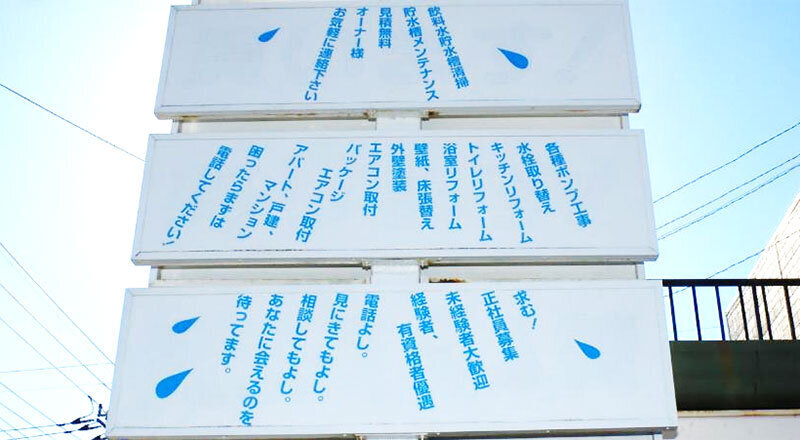 飲料水貯水槽清掃
貯水槽メンテナンス
見積無料
オーナー様
お気軽に連絡下さい
各種ポンプ工事
水栓取り替え
キッチンリフォーム
トイレリフォーム
浴室リフォーム
壁紙、床張替え
外壁塗装
エアコン取付
パッケージ
エアコン取付
アパート、戸建、
マンション
困ったらまずは
電話してください!
求む!
正社員募集
未経験者大歓迎
経験者、
有資格者優遇
電話よし。
見にきてもよし。
相談してもよし。
あなたに会えるのを
待ってます。